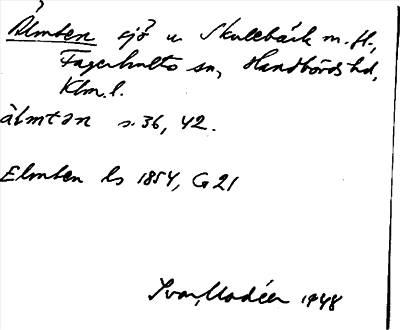 Älmten sjö u. Skulebäck m. fl.,
Fagerhults sn, Handbörds hd,
Klm. l.
älmtən s. 36, 42.
Elmten ls 1854, G 21
Ivar Modéer 1948